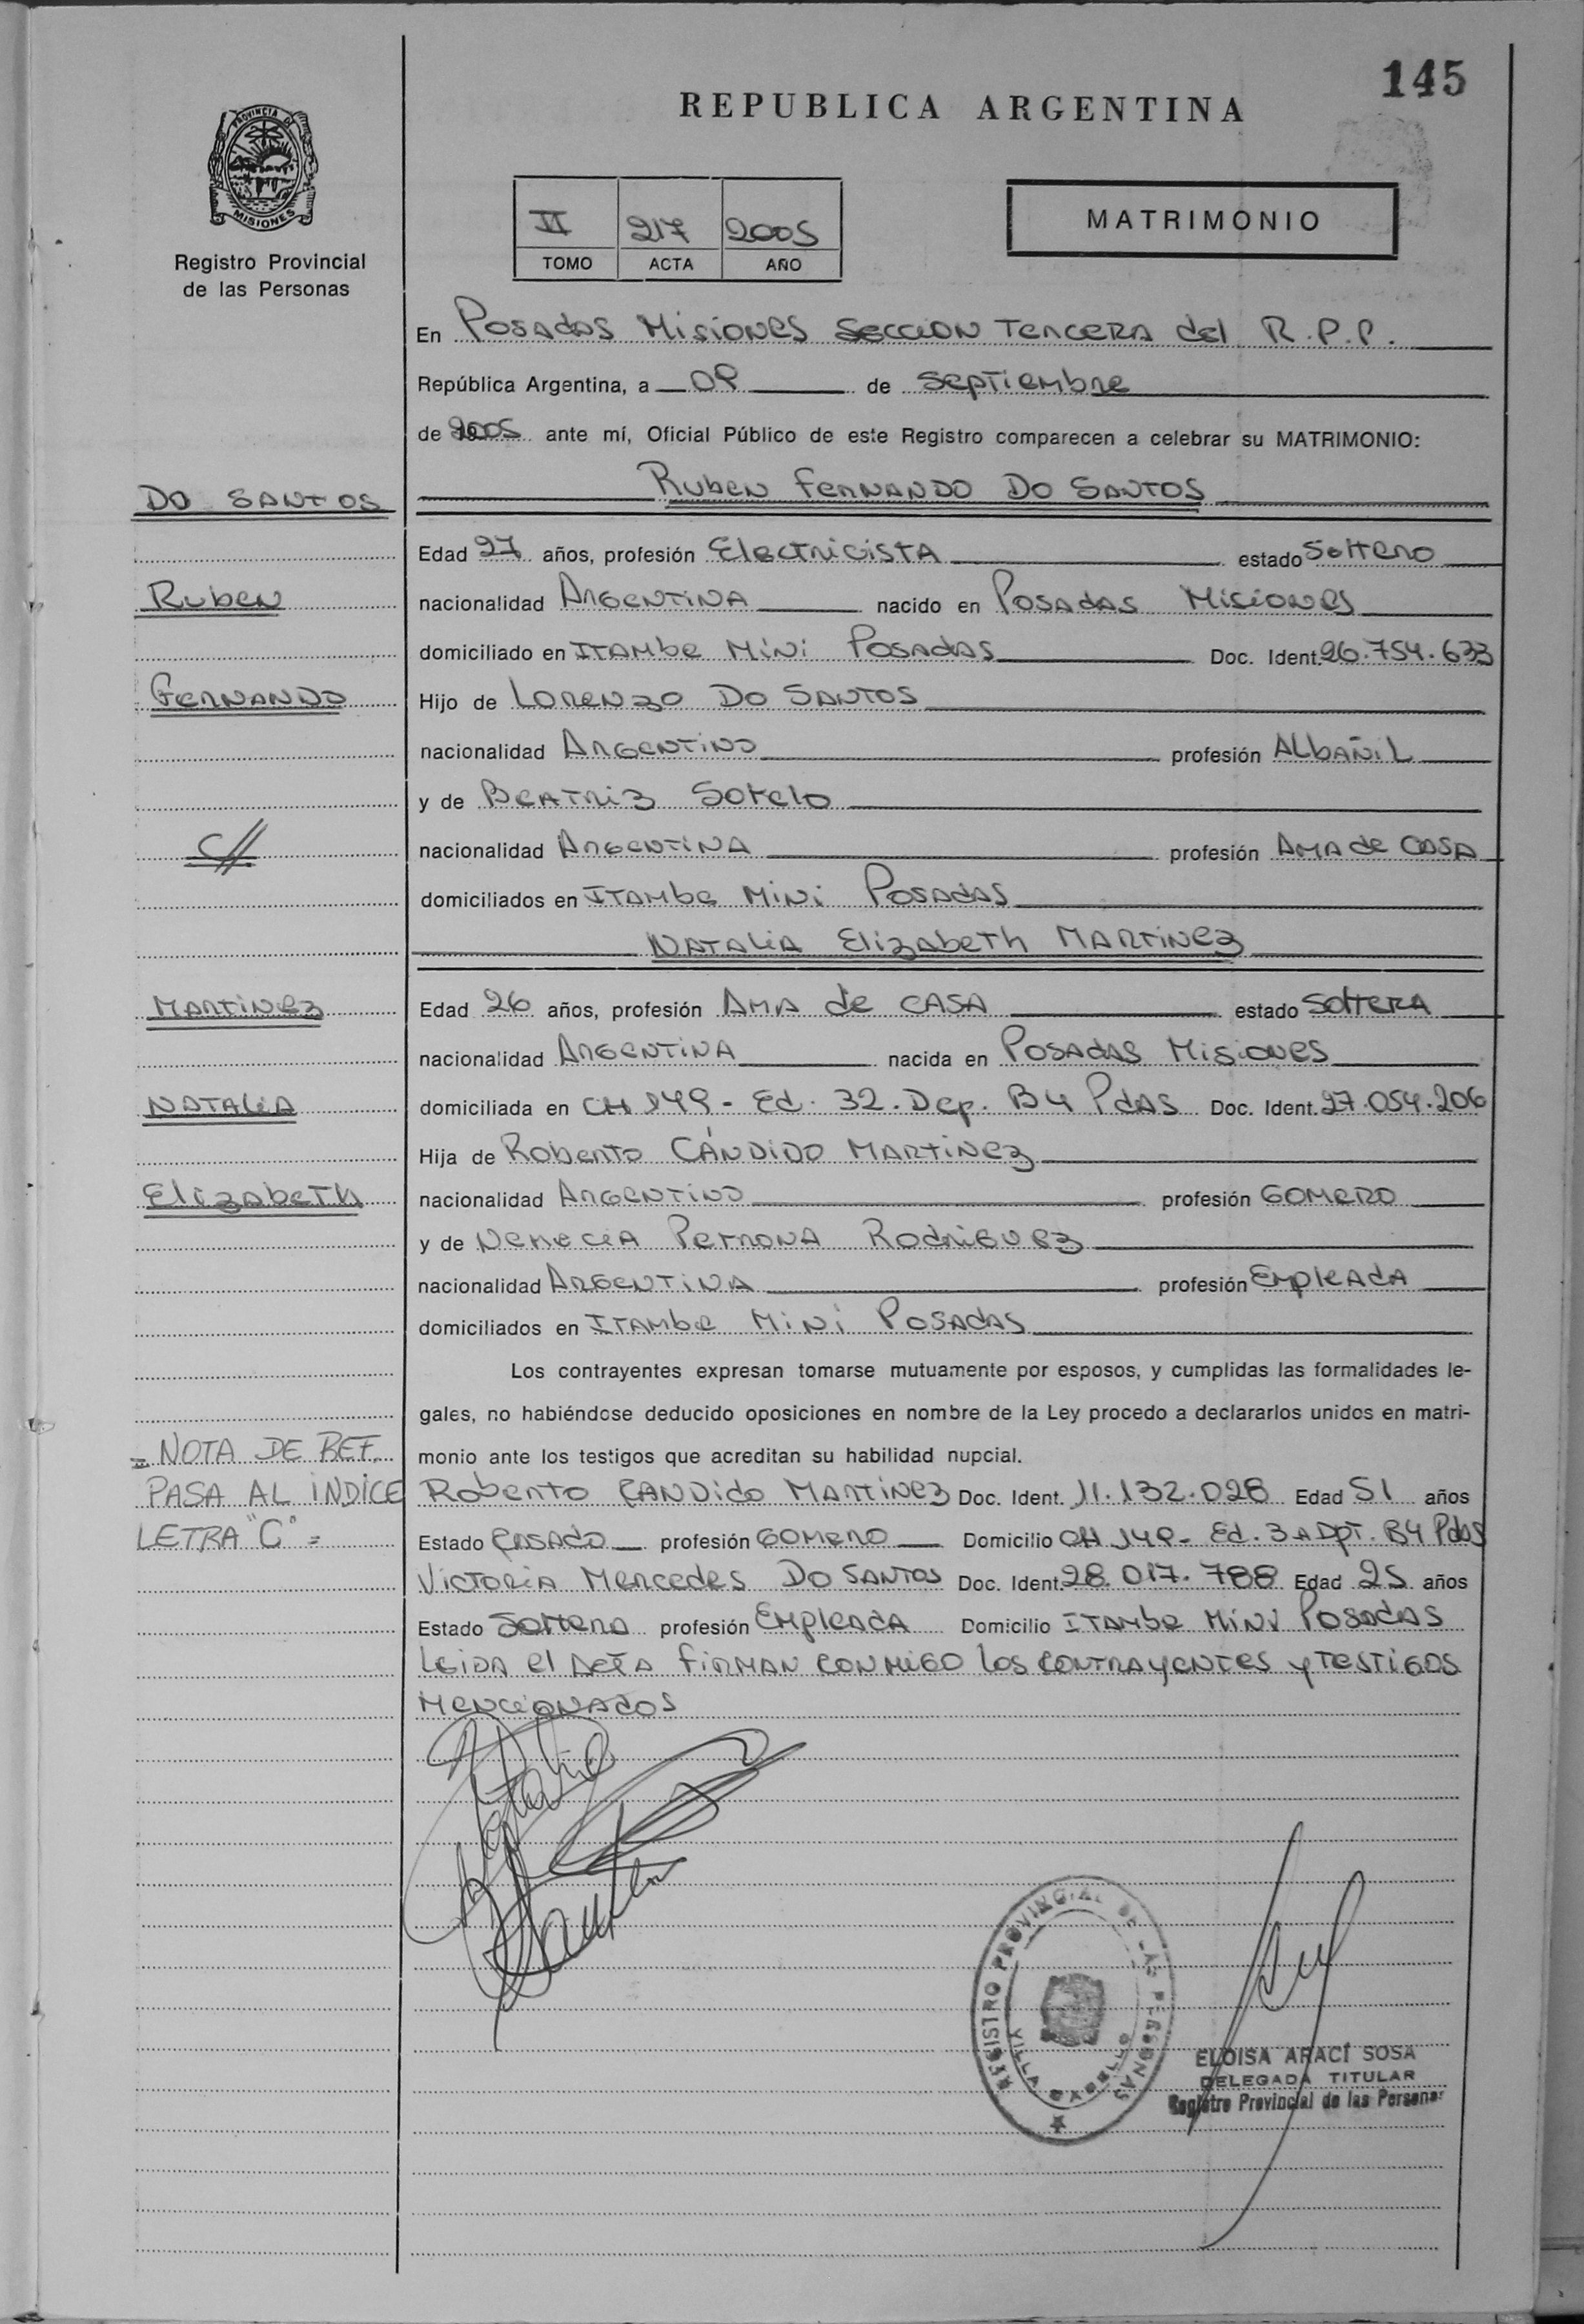 145
REPUBLICA ARGENTINA
PROVINCIA DE
MISIONES
Registro Provincial
de las Personas
II 217 2005
TOMO ACTA AÑO
MATRIMONIO
En Posadas Misiones Seccion Tercera del R.P.P.
República Argentina, a 09 de Septiembre
de 2005 ante mí, Oficial Público de este Registro comparecen a celebrar su MATRIMONIO:
DO SANTOS
Ruben Fernando Do Santos
Edad 27 años, profesión Electricista estado Soltero
Ruben
nacionalidad Argentina nacido en Posadas Misiones
domiciliado en Itambe Mini Posadas Doc. Ident. 26.754.633
Fernando
Hijo de Lorenzo Do Santos
nacionalidad Argentino profesión Albañil
y de Beatriz Sotelo
C//
nacionalidad Argentina profesión Ama de Casa
domiciliados en Itambe Mini Posadas
Natalia Elizabeth Martinez
Martinez
Edad 26 años, profesión Ama de Casa estado Soltera
nacionalidad Argentina nacida en Posadas Misiones
Natalia
domiciliada en CH 149 - Ed. 32. Dep. B4 Pdas Doc. Ident. 27.054.206
Hija de Roberto Cándido Martinez
Elizabeth
nacionalidad Argentino profesión Gomero
y de Petrona Rodriguez
nacionalidad Argentina profesión Empleada
domiciliados en Itambe Mini Posadas
Los contrayentes expresan tomarse mutuamente por esposos, y cumplidas las formalidades le-
gales, no habiéndose deducido oposiciones en nombre de la Ley procedo a declararlos unidos en matri-
monio ante los testigos que acreditan su habilidad nupcial.
= NOTA DE REF.
PASA AL INDICE
LETRA "G" =
Roberto Candido Martinez Doc. Ident. 11.132.028 Edad 51 años
Estado Casado profesión Gomero Domicilio CH 149 - Ed. 3 A Dpt. B4 Pdas
Victoria Mercedes Do Santos Doc. Ident. 28.017.788 Edad 25 años
Estado Soltera profesión Empleada Domicilio Itambe Mini Posadas
Leida el Acta firman conmigo los contrayentes y testigos
mencionados
REGISTRO PROVINCIAL DE LAS PERSONAS
VILLA CABELLO
ELOISA ARACÍ SOSA
DELEGADA TITULAR
Registro Provincial de las Personas